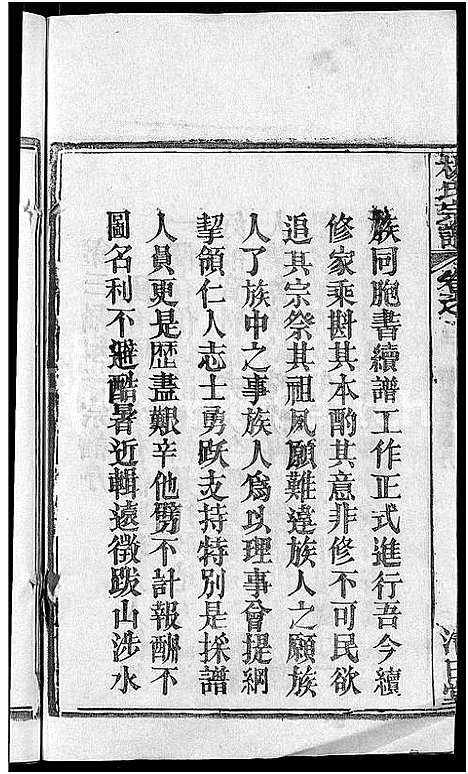 氏宗譜
卷之
族同胞書續譜工作正式進行吾今續
修家乘斟其本酌其意非修不可民欲
追其宗祭其祖夙願難違族人之願族
人了族中之事族人為以理事會提綱
挈領仁人志士勇跃支持特別是採譜
人員更是歷盡艱辛他劈不計報酬不
圖名利不避酷暑近輯遠徵跋山涉水